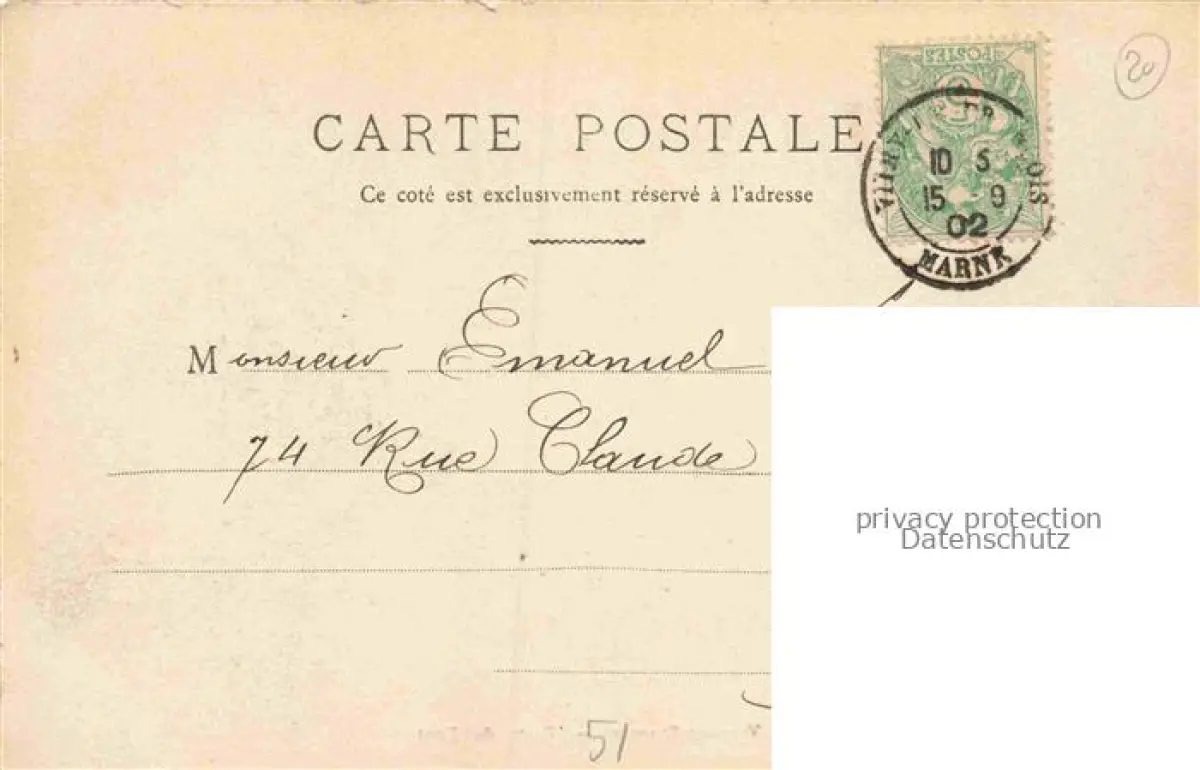 POSTES
5
20
CARTE POSTALE
Ce coté est exclusivement réservé à l'adresse
VITRY-LE-FRANCOIS
10 S
15 - 9
02
MARNE
Monsieur Emanuel
74 Rue Claude
privacy protection
Datenschutz
51